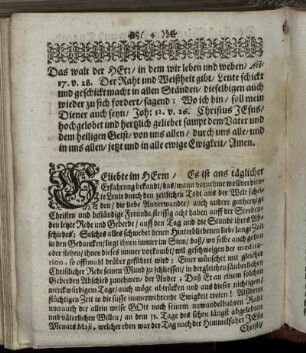 4
Das walt der HErr/ in dem wir leben und weben/ Act.
17. v. 28. Der Raht und Weißheit gibt/ Leute schickt
und geschickt macht in allen Ständen/ dieselbigen auch
wieder zu sich fordert/ sagend: Wo ich bin/ soll mein
Diener auch seyn/ Joh: 12. v. 26. Christus JEsus/
hochgelobet und hertzlich geliebet sampt dem Vater und
dem heiligen Geist/ von uns allen/ durch uns alle/ und
in uns allen/ jetzt und in alle ewige Ewigkeit/ Amen.
GEliebte im HErrn/ Es ist aus täglicher
Erfahrung bekandt/ das/ wann vornehme
te Leute durch den zeitlichen Todt aus der Welt scheiden/
den/ die liebe Anverwandte/ auch andere gutthertzige
Christen und beständige Freunde fleissig acht haben auff der Sterbenden
den letzte Rede und Geberde/ auff den Tag und die Stunde ihres Abscheides/
Solches alles schwebet denen Hinterbliebenen lange Zeit
in den Gedancken/ liegt ihnen immer im Sinn/ daß/ wo sehr auch geschehen/
oder sehen/ ihnen dieses immer
Christlicher Rede seinen Mund zu schliessen/ in dergleichen
Geberden Abschied zunehmen/ der Ander: Daß Er an einem solchen
merckwürdigen Tage/ auch möge abdrücken und aus dieser
flüchtigen Zeit in die immerwehrende Ewigkeit treten!
unnachbarte der allein weise GOtt nach seinem unwandelbahren Rath
und väterlichen Willen/ an dem 15. Tage des schon längst abgelebten
Monats Maji, welcher eben war der Tag nach der Himmelfart JEsu
Christi/